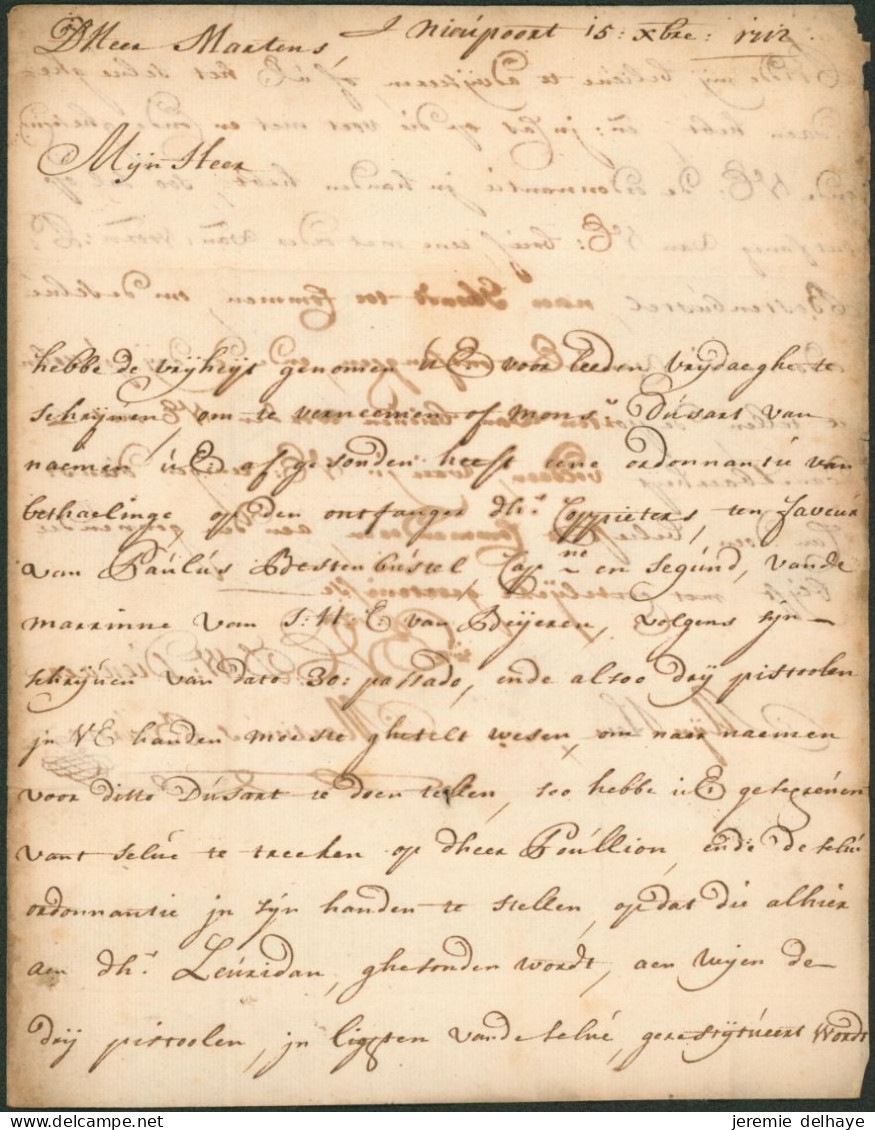 DHeer Martens J nieupoort 15: xbre: 1712
Mijn Heer
hebbe de vryheyt genomen UE voorleeden vrydaeghe te
schrijven, om te verneemen of monsr Dusart van
naemen UE afgesonden heeft eene ordonnantie van
bethaelinge, op den ontfanger dhr. Coppieters, ten faveur
van Paulus Bestenbustel Capne en segund, vande
marrinne vom S: H: E van Beijeren, volgens syn
schrijven van dato 30: passado, ende alsoo dry pistoolen
jn VE handen moeste ghetelt wesen, om naer naemen
voor ditto Dusart te doen tellen, soo hebbe UE geschreven
vant selve te trecken op dheer Poullion, ende de selve
ordonnantie jn syn handen te stellen, op dat die alhier
aen dhr. Leuridan, ghesonden wordt, aen wijen de
dry pistoolen, jn ligten vande selve, gerestytueert wordt
HIPPOSTCARD
jeremie delhaye